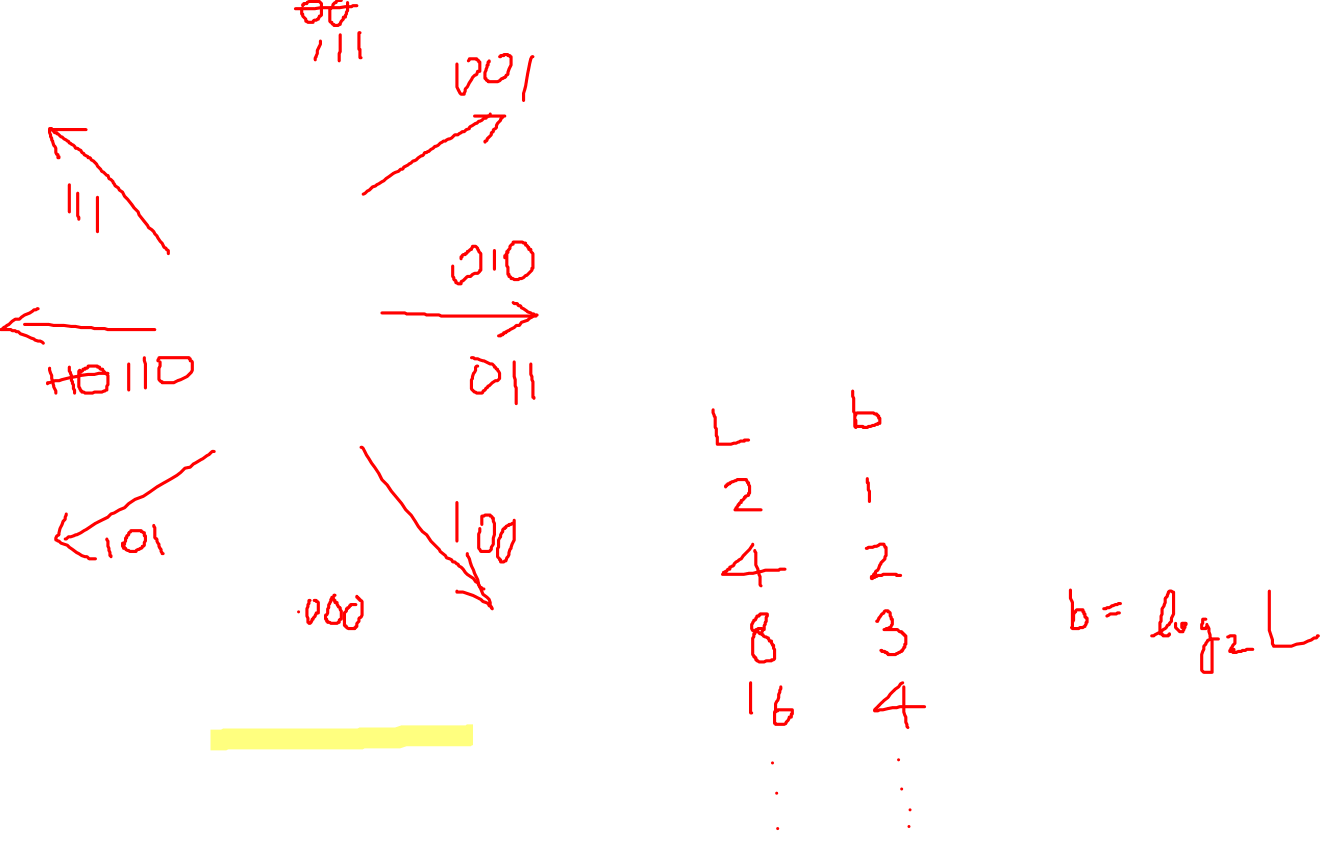 00
111
001
111
010
110 110
011
101
100
000
L b
2 1
4 2
8 3
16 4
b = log₂ L